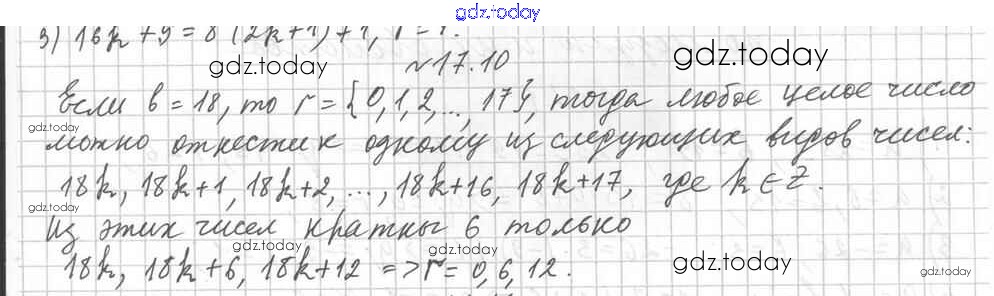 gdz.today
3) 16k + 9 = 8 (2k+1) + 1, r = 1.
№17.10
gdz.today
gdz.today
Если b = 18, то r = {0, 1, 2, ..., 17}, тогда любое целое число
gdz.today
можно отнести к одному из следующих видов чисел:
18k, 18k+1, 18k+2, ..., 18k+16, 18k+17, где k ∈ Z.
gdz.today
Из этих чисел кратны 6 только
gdz.today
gdz.today
18k, 18k+6, 18k+12 => r = 0, 6, 12.
gdz.today
gdz.today
gdz.today